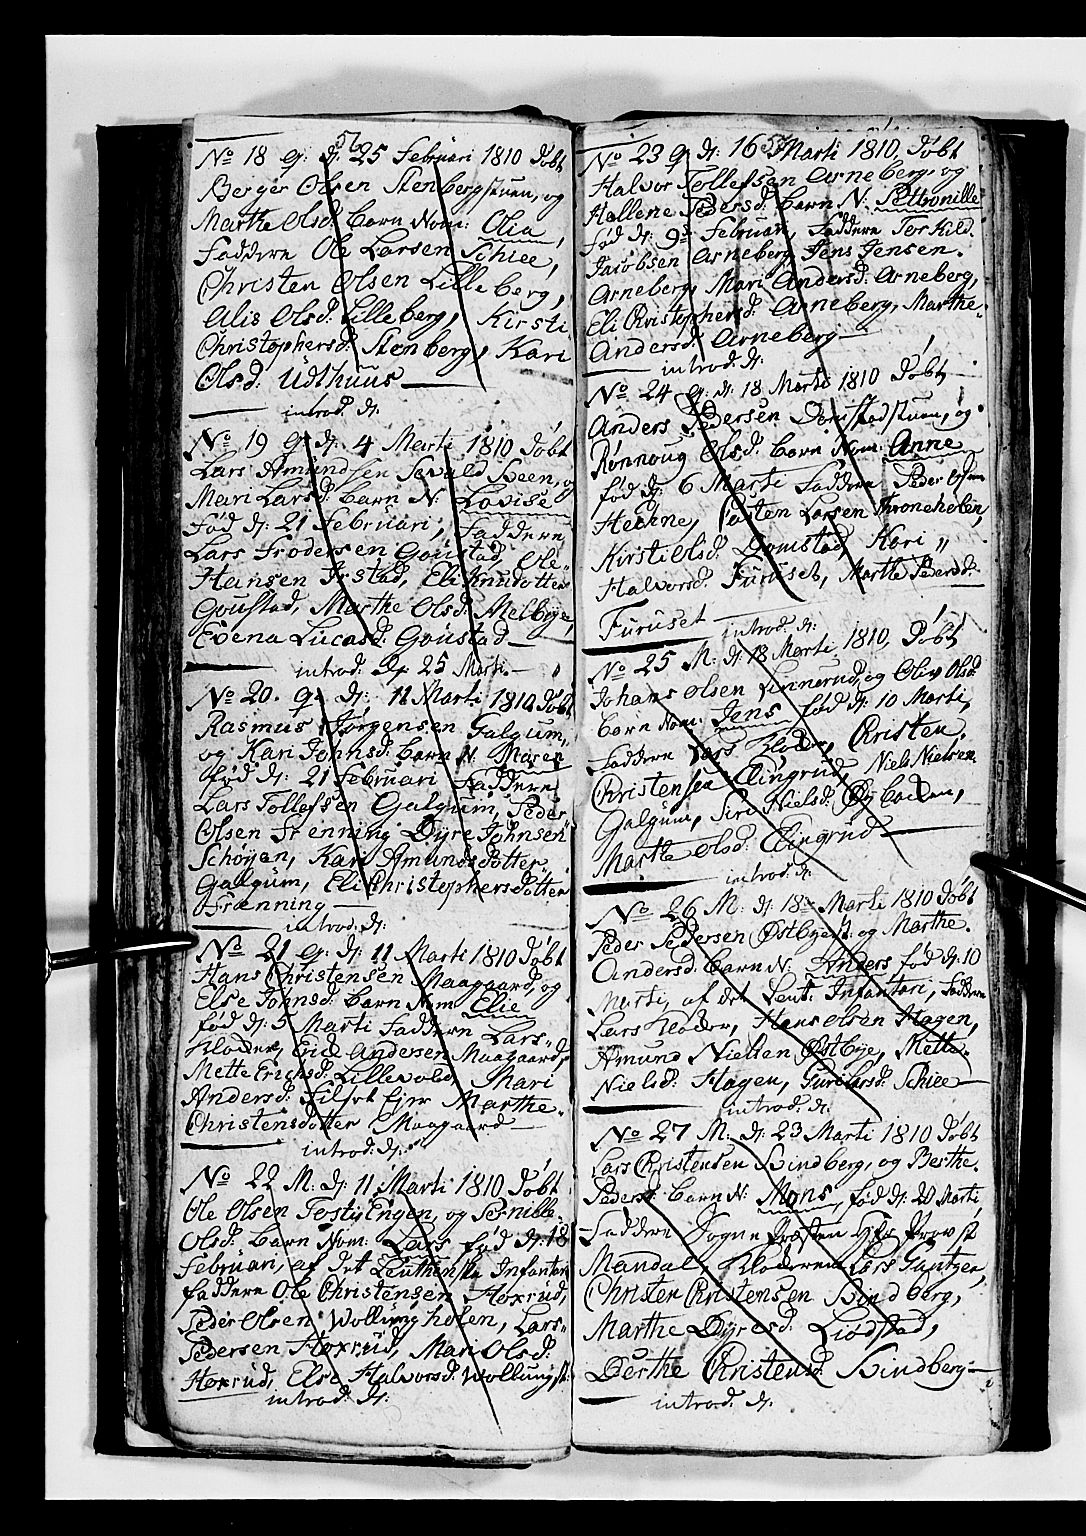 56
No 18 q: d: 25 Februari 1810 Døbt
Berger Olsen Stenbergstuen, og
Marthe Olsd: barn Nom: Olia,
Faddere Ole Larsen Schiee,
Christen Olsen Lilleberg,
Alis Olsd: Lilleberg, Kirsti
Christophersd: Stenberg, Kari
Olsd: Udthuus
introd: d:
No 19 q: d: 4 Marti 1810 Døbt
Lars Amundsen Been, og
Mari Larsd: barn N: Lovise
Fød d: 21 Februari, Faddere
Lars Frodersen Goustad, Ole
Hansen Irstad, Eli Knudotter
Goustad, Marthe Olsd: Melbye,
Evena Lucasd: Goustad
introd: d: 25 Marti
No 20. q: d: 11 Marti 1810 Døbt
Rasmus Jørgensen Galgum,
og Kari Johnsd: barn N: Maren
fød d: 21 Februari Faddere
Lars Tollefsen Galgum, Peder
Olsen Frenning Dyre Johnsen
Schøyen, Kari Amundsdotter
Galgum, Eli Christophersdotter
Frænning
introd: d:
No 21 q: d: 11 Marti 1810 Døbt
Hans Christensen Maagaard, og
Else Johnsd: barn Nom Elie
fød d: 5 Marti Faddere Lars
Kloder, Eric Andersen Maagaard,
Mette Erichsd: Lillevold, Mari
Andersd: Marthe
Christensdotter Maagaard
introd: d:
No 22 M: d: 11 Marti 1810 Døbt
Ole Olsen TostyEngen, og Pernille
Olsd: barn Nom: Lars fød d: 18
Februari, af det Infanteri
faddere Ole Christensen Hoxrud,
Peder Olsen Wollungholen, Lars
Pedersen Hoxrud, Mari Olsd:
Hoxrud, Else Halvorsd:
introd: d:
57
No 23 q: d: 16 Marti 1810, Døbt
Halvor Tollefsen Arneberg, og
Hallene Pedersd: barn N: Pettronille
fød d: 9de Februari, Faddere Torkild
Jacobsen Arneberg, Jens Jensen
Arneberg, Mari Andersd: Arneberg,
Eli Christophersd: Arneberg, Marthe
Andersd: Arneberg
introd: d:
No 24 q: d: 18 Marti 1810 Døbt
Anders Pedersen og
Rønnoug Olsd: barn Nom: Anne
fød d: 6 Marti Faddere Peder Olsen
Hechne, Larsen Throneholen,
Kirsti Olsd: Kari
Halvorsd: Furuset, Marthe Pedersd:
Furuset
introd: d:
No 25 M: d: 18 Marti, 1810, Døbt
Johans Olsen Linnerud, og Oliv Olsd:
barn Nom: Jens fød d: 10 Marti,
Faddere Lars Kloder, Kristen
Christensen Clingrud, Niels Nielsen
Galgum, Siri Nielsd:
Marthe Olsd: Clingrud
introd: d:
No 26 M: d: 18 Marti 1810 Døbt
Peder Pedersen Østbye og Marthe
Andersd: barn N: Anders fød d: 10
Marti, af det Infanteri, Faddere
Lars Kloder, Hans Olsen Hagen,
Amund Nielsen Østbye, Mette
Nielsd: Hagen, Guri Larsd: Schiee
introd: d:
No 27 M: d: 23 Marti 1810 Døbt
Lars Christensen Svindberg, og Berthe
Pedersd: barn N: Mons, fød d: 20 Marti
Faddere Sogne Præsten Provst
Mandal, Klokeren Lars
Christen Christensen Svindberg,
Marthe Dyresd: Liødstad,
Berthe Christensd: Svindberg
introd: d: